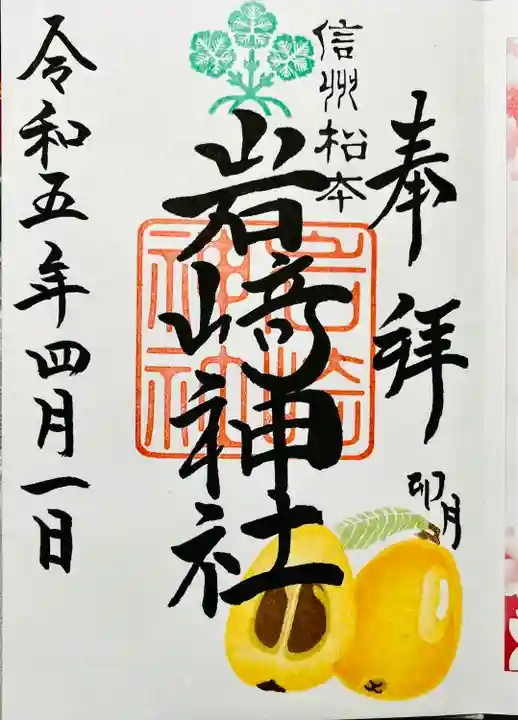 奉拝
卯月
信州松本
岩﨑神社
岩崎
神社
令和五年四月一日